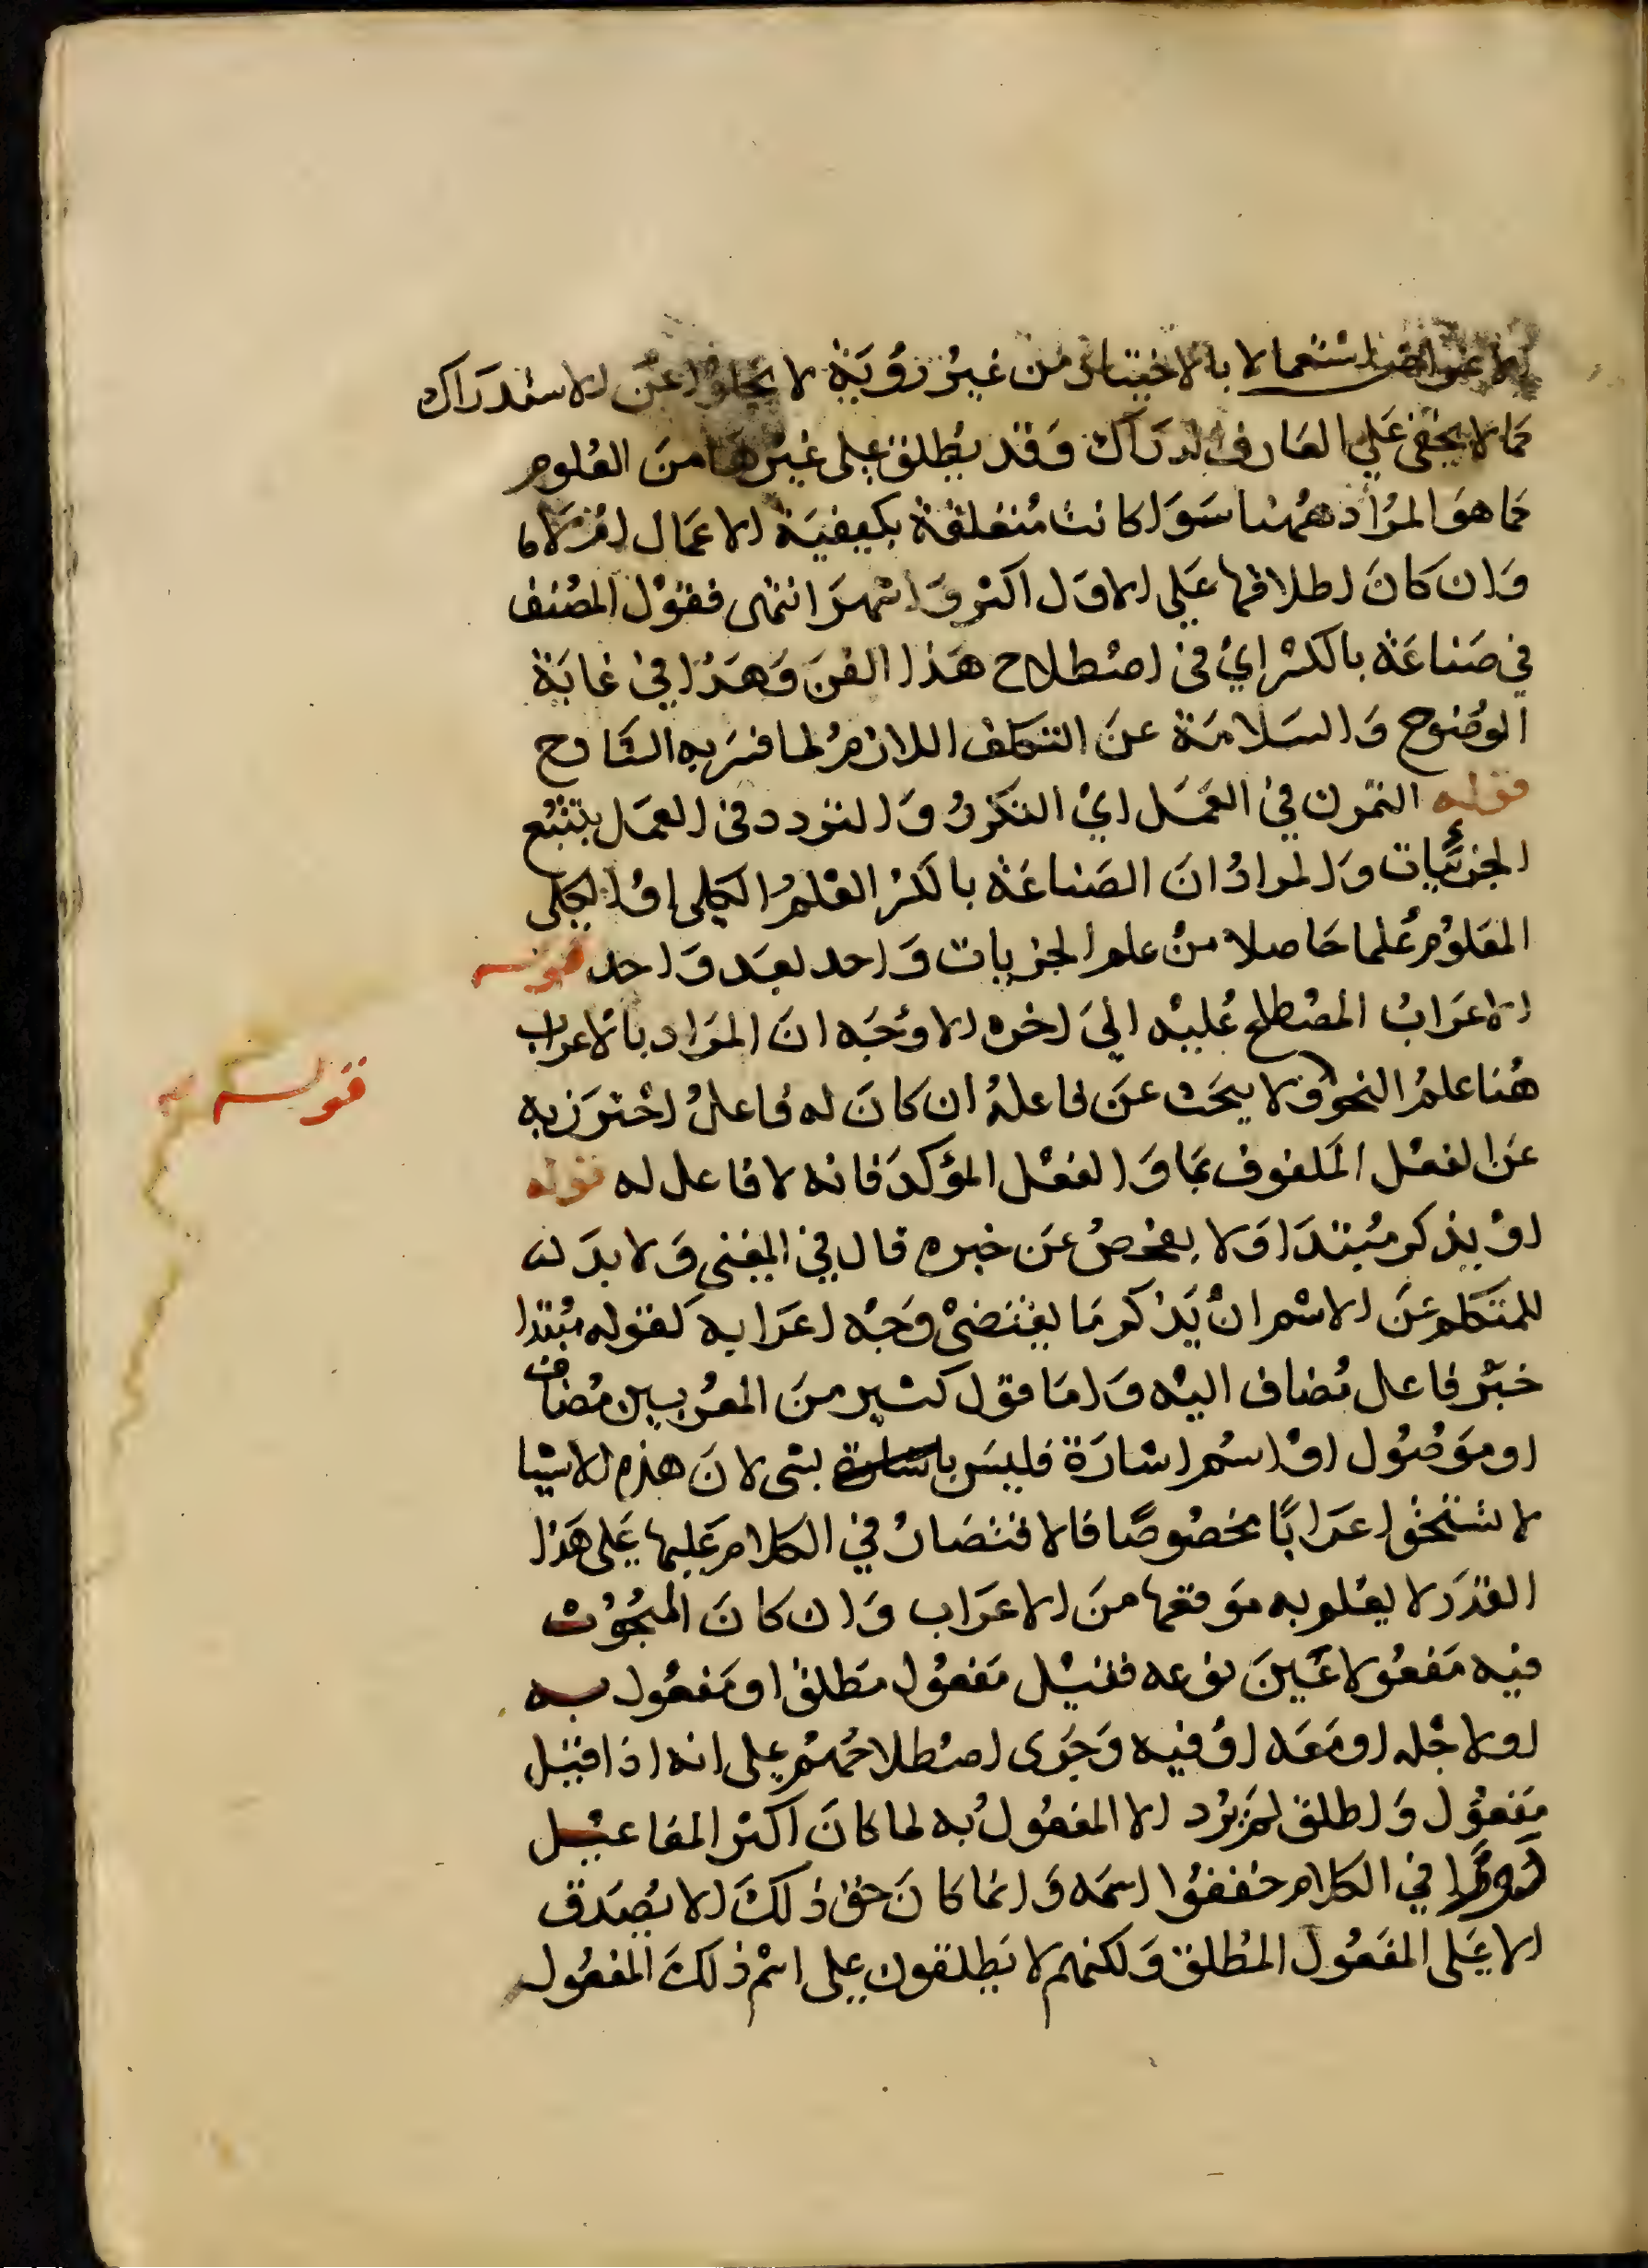 الاغراض استعمالا بالاختيار من غير رؤية لا يخلوا عن الاستدراك
كما لا يخفى على العارف الدراك وقد يطلق على غيرها من العلوم
كما هو المراد ههنا سوا كانت متعلقة بكيفية الاعمال او لا
وان كان اطلاقها على الاول اكثر واشهر انتهى فقول المصنف
في صناعة بالكسر اي في اصطلاح هذا الفن وهذا في غاية
الوضوح والسلامة عن التكلف اللازم لما فسر به الشارح
قوله التمرن في العمل اي التكرر والتردد في العمل بتتبع
الجزئيات والمراد ان الصناعة بالكسر العلم الكلي او الكلي
المعلوم علما حاصلا من علم الجزيات واحد بعد واحد قوله
الاعراب المصطلح عليه الى اخره الاوجه ان المراد بالاعراب
هنا علم النحو ولا يبحث عن فاعله ان كان له فاعل احترز به
قوله
عن الفعل الملفوف بما والفعل المؤكد فانه لا فاعل له قوله
او يذكر مبتدا ولا يفحص عن خبره قال في المغني ولا بد له
للمتكلم عن الاسم ان يذكر ما يقتضي وجه اعرابه كقوله مبتدا
خبر فاعل مضاف اليه واما قول كثير من المعربين مضاف
او موصول او اسم اشارة فليس بشى لان هذه الاشيا
لا تستحق اعرابا مخصوصا فالاقتصار في الكلام عليها على هذا
القدر لا يعلم به موقعها من الاعراب وان كان المبحوث
فيه مفعولا عين نوعه فقيل مفعول مطلق او مفعول به
او لاجله او معه او فيه وجرى اصطلاحهم على انه اذا قيل
مفعول واطلق لم يرد الا المفعول به لما كان اكثر المفاعيل
دورا في الكلام خففوا اسمه وانما كان حق ذلك الا يصدق
الا على المفعول المطلق ولكنهم لا يطلقون على اسم ذلك المفعول